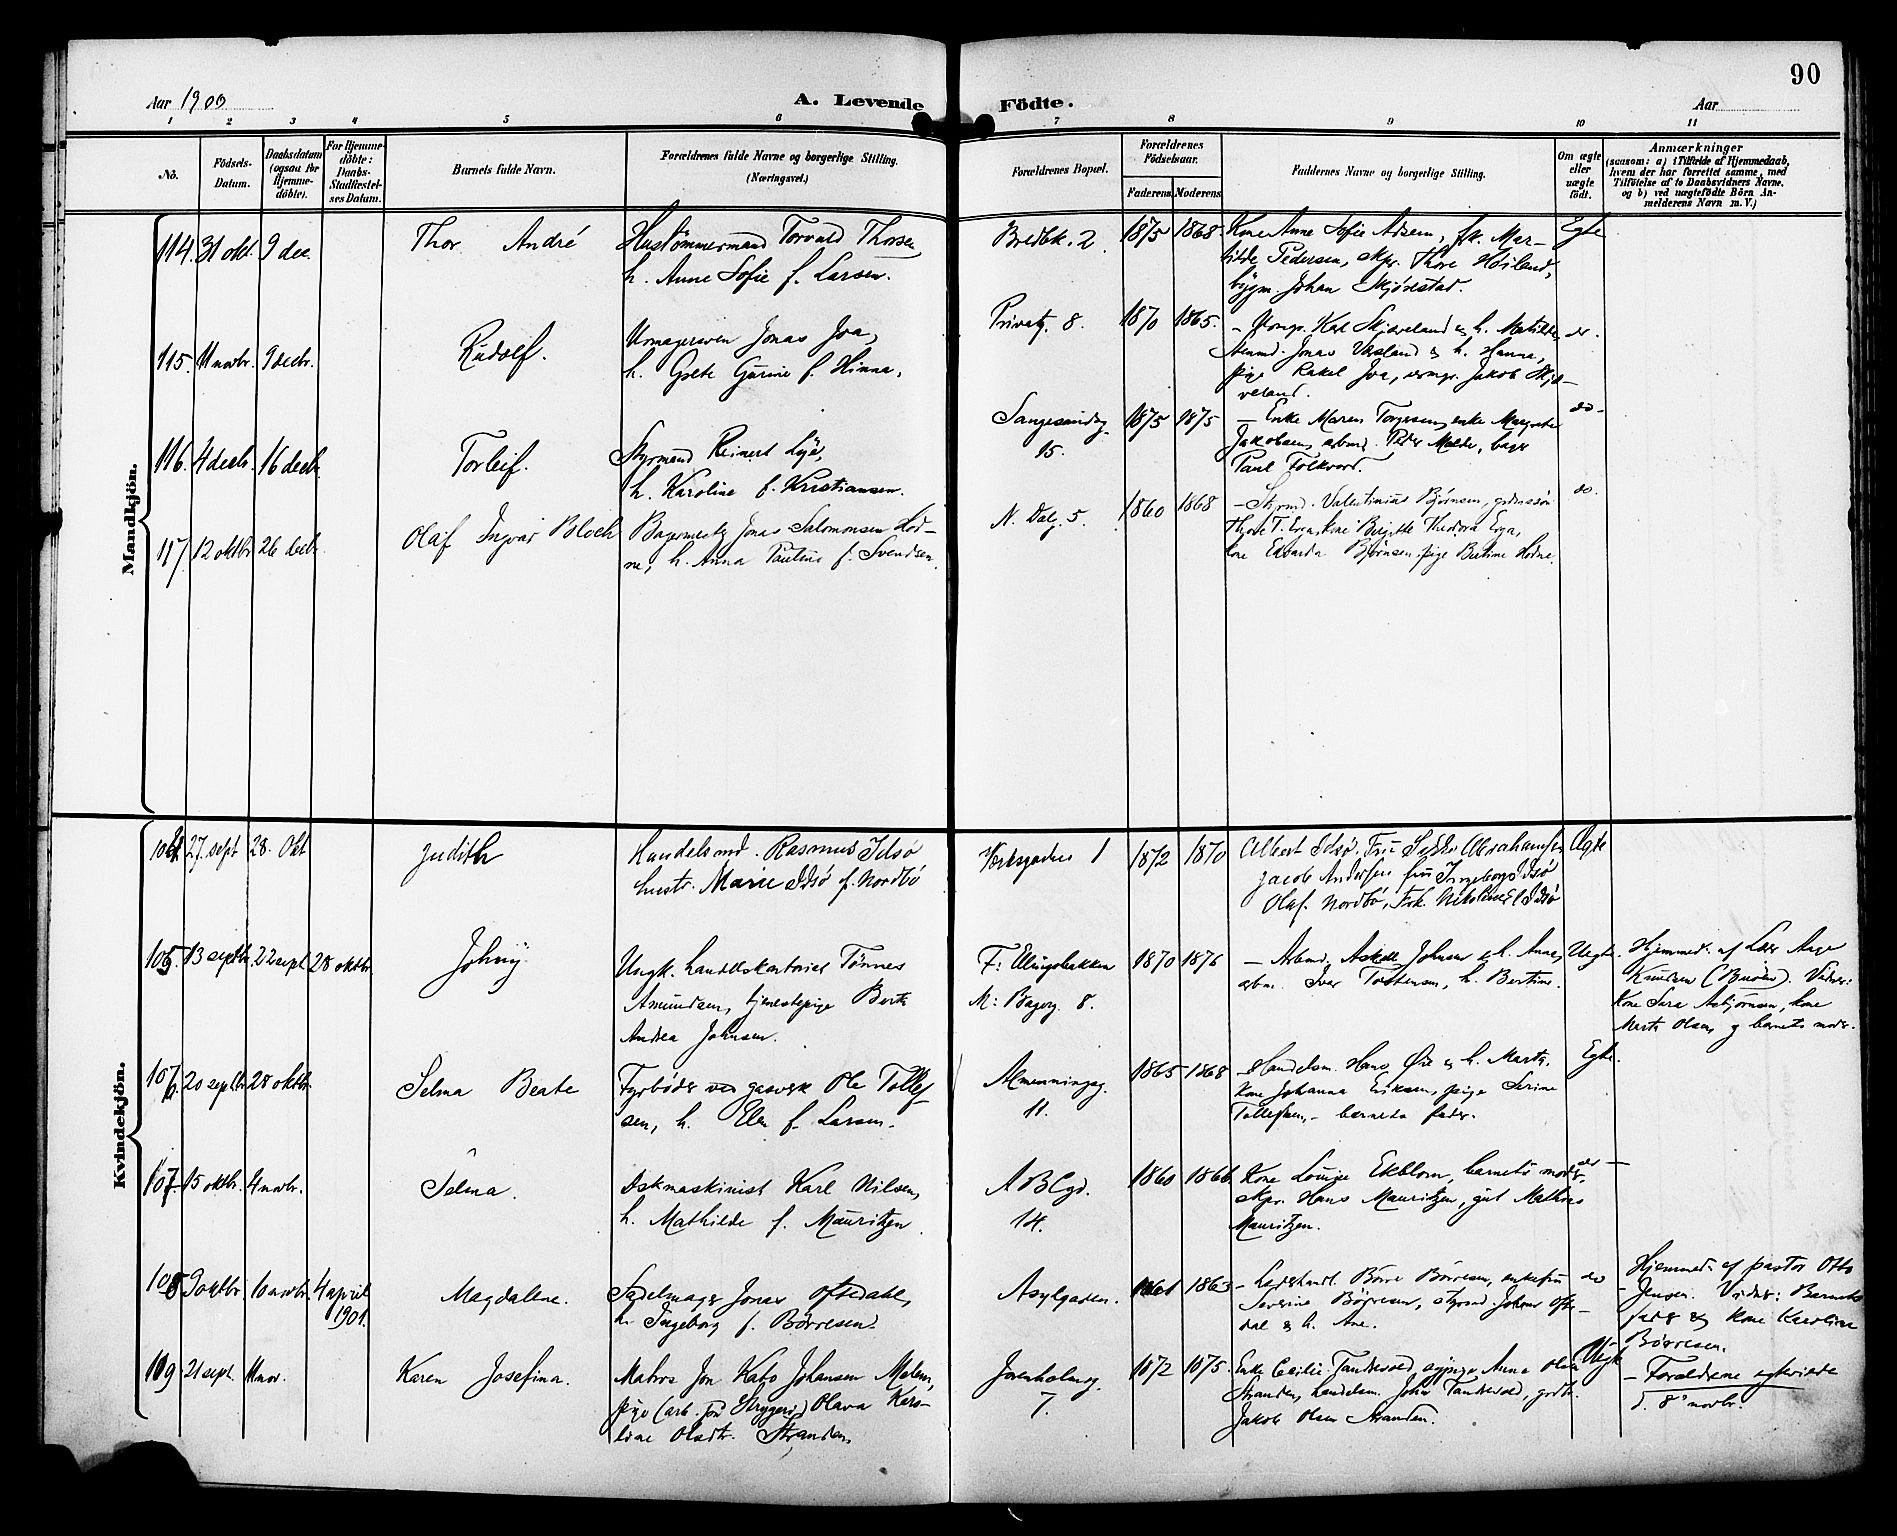 90
Aar 1900
A. Levende Födte.
Aar
1 2 3 4 5 6 7 8 9 10 11
No.
Födsels-Datum.
Daabsdatum (ogsaa for Hjemme-döbte).
For Hjemme-döbte: Daabs-Stadfæstel-ses Datum.
Barnets fulde Navn.
Forældrenes fulde Navne og borgerlige Stilling. (Næringsvei.)
Forældrenes Bopæl.
Forældrenes Födselsaar.
Faderens. Moderens.
Faddernes Navne og borgerlige Stilling.
Om ægte eller uægte födt.
Anmærkninger
(saasom: a) i Tilfælde af Hjemmedaab, hvem der har forrettet samme, med Tilföielse af to Daabsvidners Navne, og b) ved uægtefödte Börn Anmelderens Navn m. V.)
Mandkjön.
114. 31 okt. 9 dec. Thor André
Hustömmermand Torvald Thorsen,
h. Anne Sofie f. Larsen.
Bredbk. 2 1875 1868
Kone Anne Sofie Adsem, frk. Mar-
tilde Pedersen, skpr. Thore Höiland,
bygm. Johan Skjörestad.
Egte
115. 11 novbr. 9 decbr. Rudolf.
Urmagersven Jonas Joa,
h. Grete Gurine f. Hinna.
Privatg. 8. 1870 1865.
Karl Skjæveland & h. Matilde,
Jonas Vasland & h. Hanna,
pige Rakel Joa, Jakob Skjæ-
veland.
do.
116. 4 decbr. 16 decbr. Torleif.
Styrmand Reinert Lye,
h. Karoline f. Kristiansen.
15. 1875 1875
- Enke Maren Torgersen, enke Margrete
Jakobsen, arbmd. Peder Melde, bager
Paul Folkvord.
do -
117. 12 oktbr. 26 decbr. Olaf Ingvar Bloch
Bagermester Jonas Salomonsen Hod-
ne, h. Anna Pauline f. Svendsen.
N. Dalg. 5. 1860 1868
- Styrmd. Valentinius Bjørnsen, gdmssön
Thore T. Erga, kone Birgitte Theodora Erga,
kone Edvarda Bjørnsen, pige Bertine Hodne.
do.
Kvindekjön.
104 27. sept 28. Okt Judith
Handelsmd. Rasmus Idsø
hustr. Marie Idsø f. Nordbø
Verksgaden 1 1872 1870
Albert Idsø. Fru Abrahamsen
Jacob Andersen fru Ingeborg Idsø
Olaf Nordbø, Frk. Nikoline Idsø
Ægte
105. 13 septbr. 22 sept 28 oktbr. Johny
Ungk. handelskontorist Tönnes
Amundsen, tjenestepige Berta
Andrea Johnsen.
F: Ellingsbakken
M: Bagerg. 8.
1870 1876
- Arbmd. Askell Johnsen & h. Anna,
arbm. Iver Torstensen, h. Bertine.
Uegte.
Hjemmed. af Aage
Knudsen Vidner:
Kone Sara Asbjörnsen, kone
Marta Olsen, og barnets moder.
106. 20 septbr. 28 oktbr. Selma Beate
Fyrböder ved gasverk Ole Tollef-
sen, h. Elen f. Larsen.
Almenningsg.
11.
1865 1868
- Handelsm. Hans Øie & h. Marta,
Kone Johanna Eriksen, pige Serine
Tollefsen, - barnets fader.
Egte.
107. 15 oktbr. 4 novbr. Selma.
Karl Nilsen,
h. Mathilde f. Mauritzen
A B Cgd.
14.
1860 1866
Kone Louise Ekblom, barnets moder,
skpr. Hans Mauritzen, gut Mathias
Mauritzen.
do -
108 9 oktbr. 10 novbr. 4 april 1901. Magdalene.
Sadelmager Jonas Oftedahl,
h. Ingeborg f. Börresen.
Asylgaden. 1861 1863
- Læderhandl. Börre Börresen, enkefru
Severine Börresen, styrmd. Johan Ofte-
dal & h. Ane.
do -
Hjemmed. af pastor Otto
Jensen. Vidner: Barnets
fader og kone Karoline
Börresen.
109 21 sept. 11 nov. Karen Josefina.
Matros Jon Kato Johansen Malm,
pige (arb. på Strygeri) Olava Karo-
line Olsdtr. Stranden.
Jorenholmsg.
7.
1872 1875.
Enke Cecilie Tandevold, sypige Anna Olsen
Stranden, handelsm. John Tandevold, gdbr.
Jakob Olsen Stranden.
Uegte
- Forældrene egteviede
d. 8' novbr.